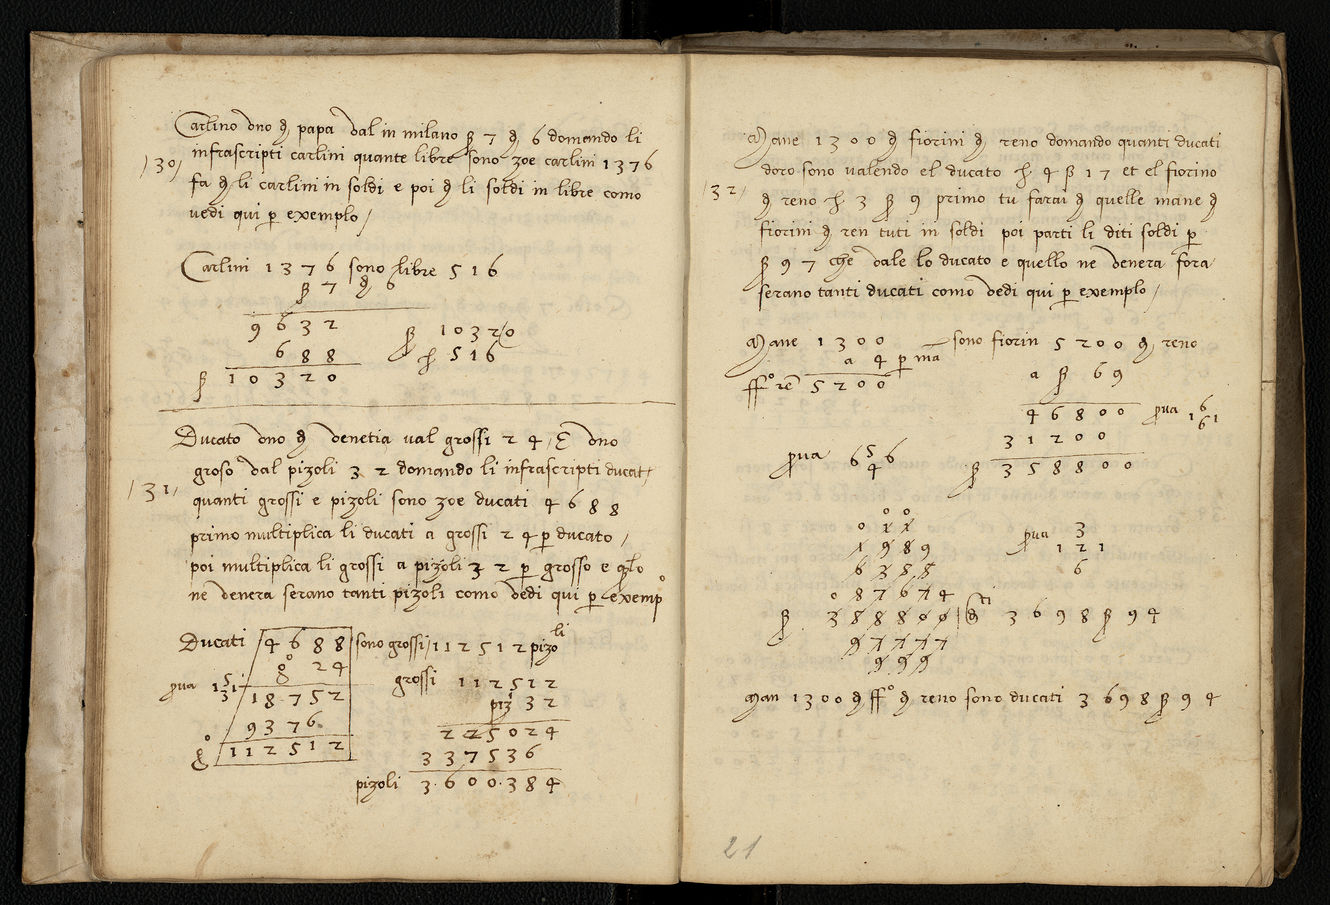 Carlino uno d papa val in milano ß 7 d 6 domando li
/30/ infrascripti carlini quante libre sono zoe carlini 1376
fa d li carlini in soldi e poi d li soldi in libre como
vedi qui p exemplo /
Carlini 1376 sono libre 516
ß 7 d 6
9632
688
ß 10320
ß 1032/0
516
Ducato uno d venetia val grossi 24 / E uno
groso val pizoli 32 domando li infrascripti ducat/
/31/ quanti grossi e pizoli sono zoe ducati 4688
primo multiplica li ducati a grossi 24 p ducato /
poi multiplica li grossi a pizoli 32 p grosso e qlo
ne venera serano tanti pizoli como vedi qui p exempo
Ducati 4688 sono grossi / 112512 pizoli
24
pva 1 5 1
3
18752
9376
112512
grossi 112512
piz 32
225024
337536
pizoli 3.600.384
Mane 1300 d fiorini d reno domando quanti ducati
doro sono valendo el ducato 4 ß 17 et el fiorino
/32/ d reno 3 ß 9 primo tu farai d quelle mane d
fiorini d ren tuti in soldi poi parti li diti soldi p
ß 97 che vale lo ducato e quello ne venera fora
serano tanti ducati como vedi qui p exemplo /
Mane 1300 sono fiorin 5200 d reno
a 4 p ma
ffo re 5200
a ß 69
46800
pva 1 6 1
6
31200
ß 358800
pva 6 5 6
4
00
011
1989
6388
087674
ß 358800 3698 ß 94
97777
999
pva 3
1 2 1
6
Man 1300 d ffo d reno sono ducati 3698 ß 94
21